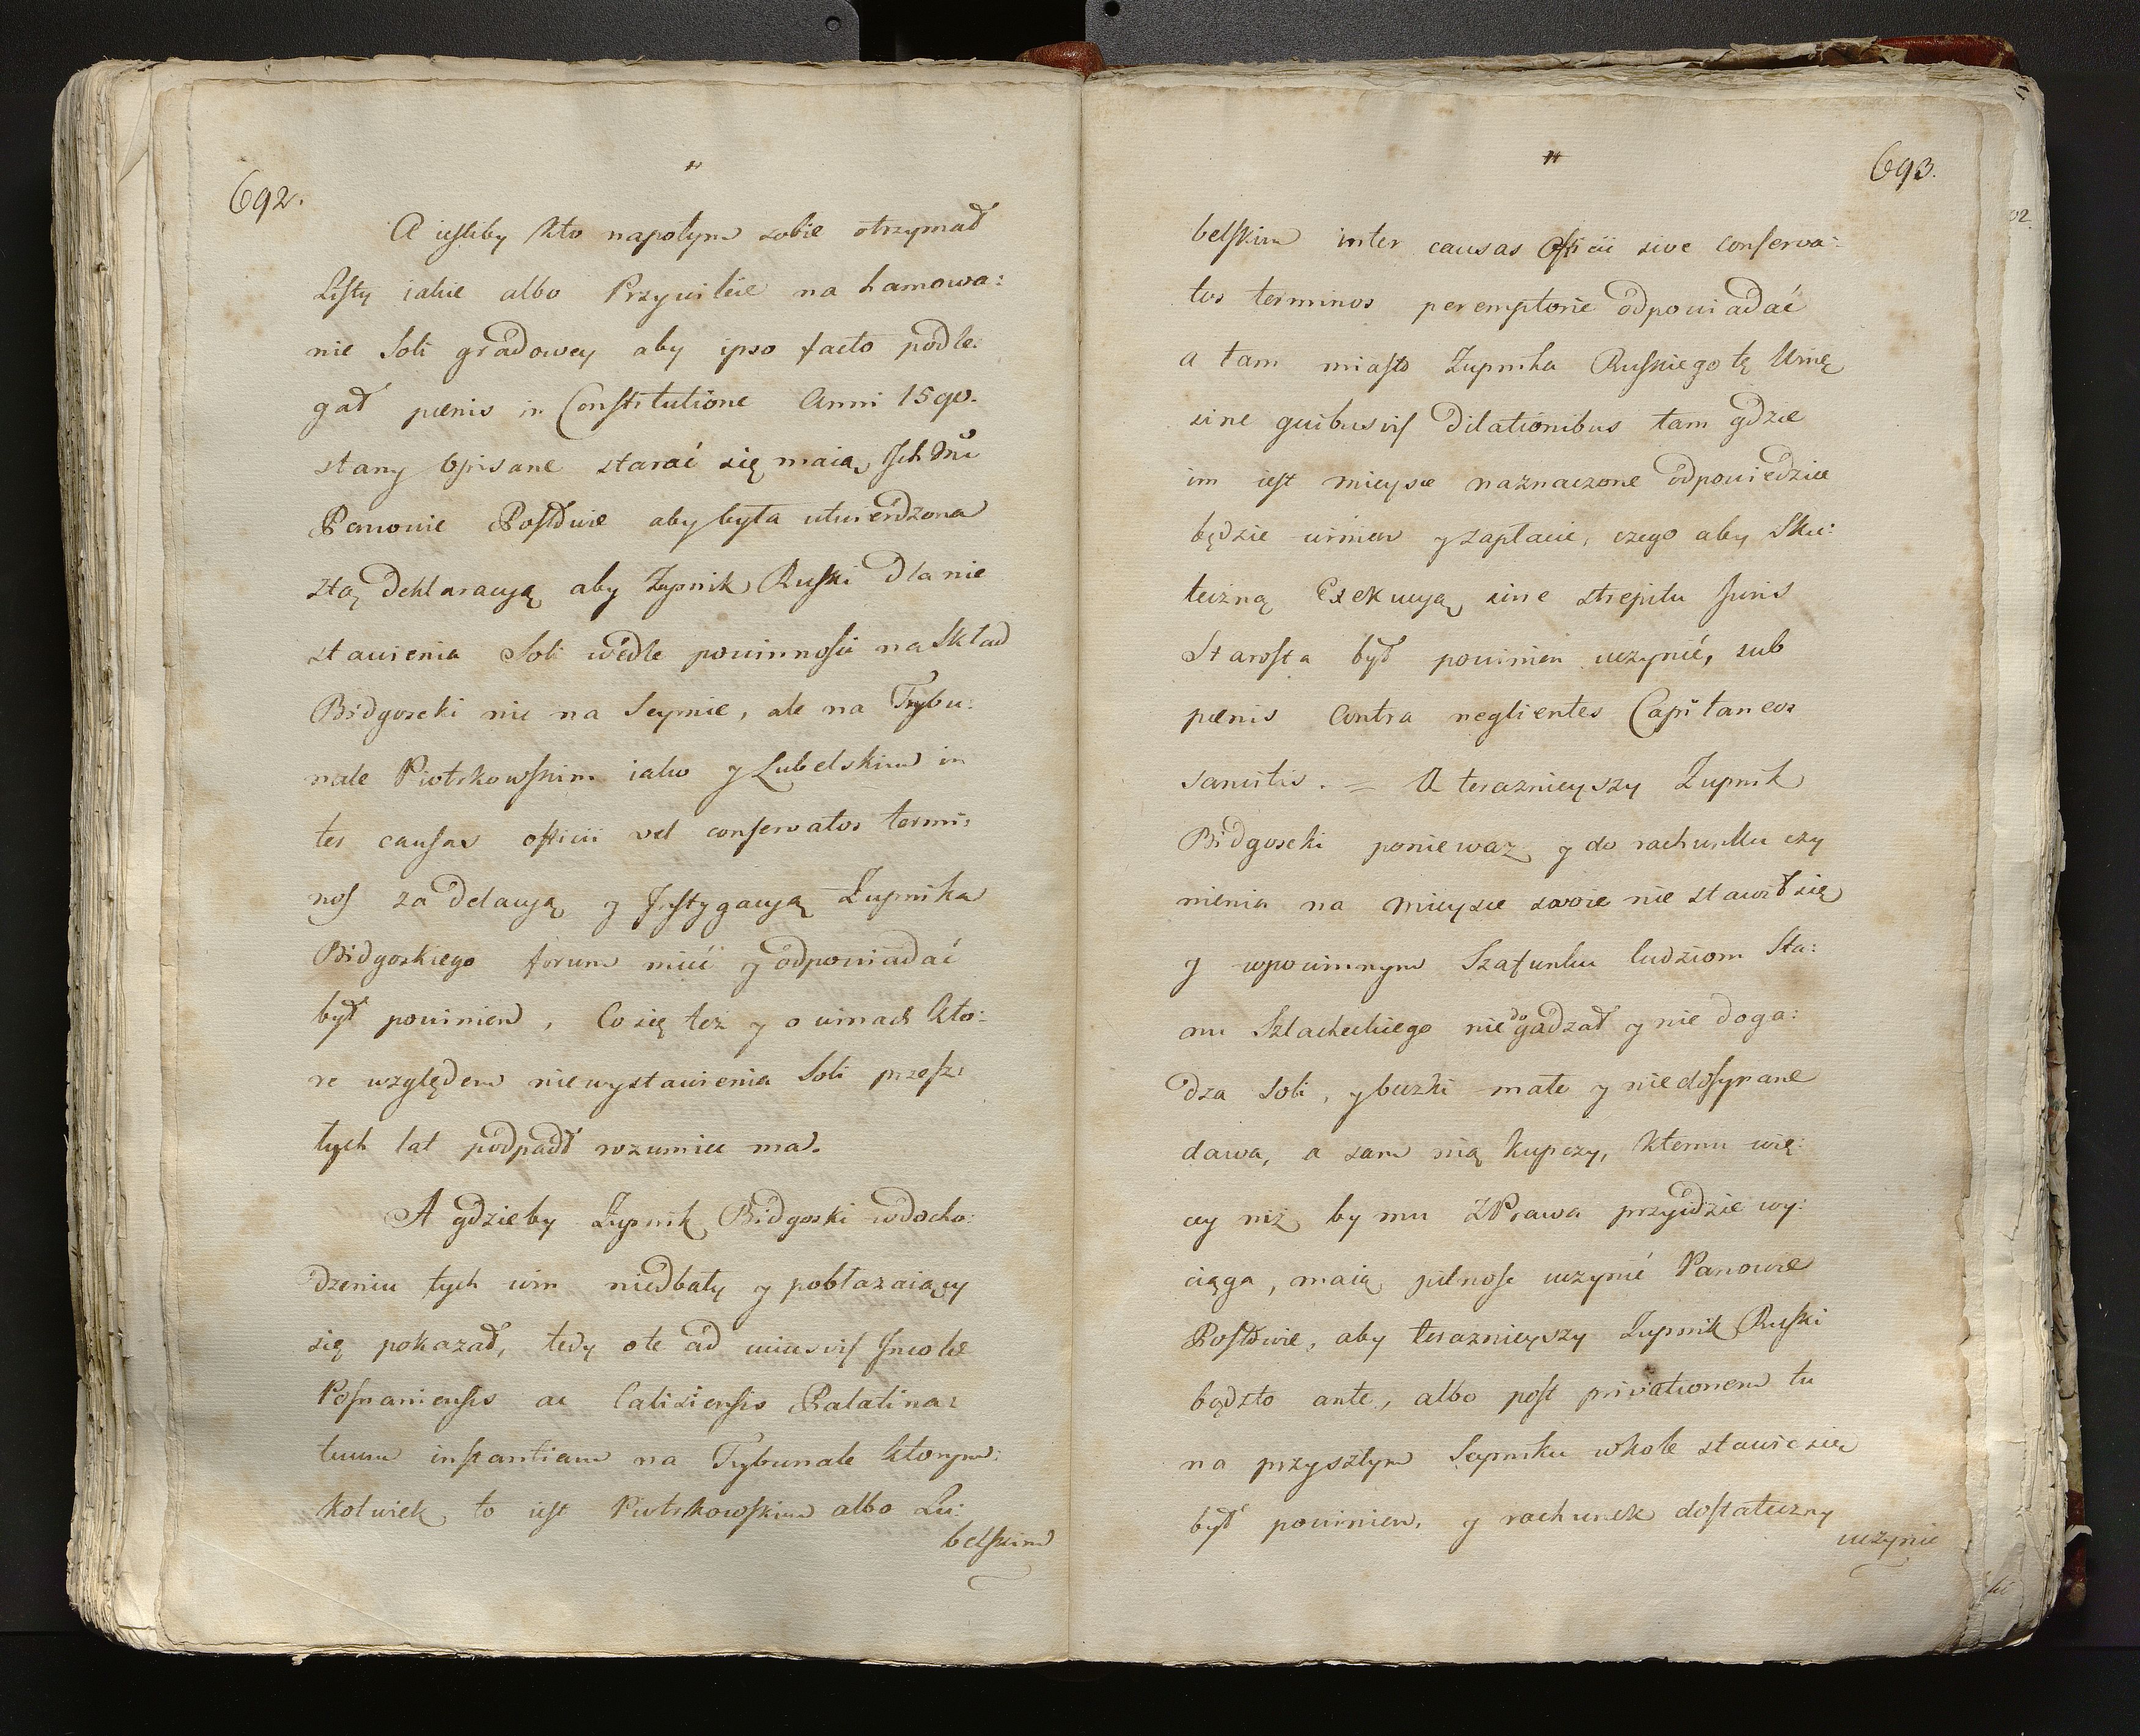 692.
A iesliby kto napotym sobie otrzymał
Listy iakie albo Przywileie na hamowa:
nie Soli gradowey aby ipso facto podle:
gał pœnis in Constitutione Anni 1590.
stany opisane starać się maią Ich
Panowie Posłowie aby była utwierdzona
ztą Deklaracyą aby Zupnik Ruski dla nie
stawienia Soli wedle powinności na Skład
Bidgoscki nie na Seymie, ale na Trybu:
nale Piotrkowskim iako y Lubelskim in
ter causas officii vel conservatos termi:
nos za delacyą y Instygacyą Zupnika
Bidgoskiego forum mieć y odpowiadać
był powinien, Co się też y o winach kto:
re względem niewystawienia Soli przesz:
łych lat podpadł rozumieć ma.
A gdzieby Zupnik Bidgoski wdocho:
dzeniu tych win niedbały y pobłazaiący
się pokazał, tedy ote ad cuiusvis Incolæ
Posnaniensis ac Calisiensis Palatina:
tuum instantiam na Trybunale ktorym:
kolwiek to iest Piotrkowskim albo Lu:
belskim
693.
belskim inter causas Officii sive conserva:
tos terminos peremptorie odpowiadać
a tam miasto Zupnika Ruskiego tę Winę
sine quibusvis Dilationibus tam gdzie
im iest mieysce naznaczone odpowiedziec
będzie winien y zapłacic, czego aby Sku:
teczną Exekucyą sine strepitu Iuris
Starosta był powinien uczynić, sub
pœnis contra neglientes Capitaneos
sancitis. = A teraznieyszy Zupnik
Bidgoscki poniewaz y do rachunku czy
nienia na mieysce swoie nie stawił się
y wpowinnym Szafunku ludziom Sta:
nu Szlacheckiego nie dogadzał y nie doga:
dza Soli, y beczki małe y niedosypane
dawa, a sam nią kupczy, ktemu wię:
cey niż by mu z Prawa przyidzie wy:
ciąga, maią pilność uczynić Panowie
Posłowie, aby terazniejszy Zupnik Ruski
bądzto ante, albo post privationem tu
na przyszłym Seymiku wkole stawić się
był powinien, y rachunek dostateczny
uczynic